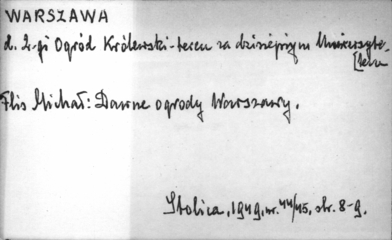 WARSZAWA
d. 2-gi Ogród Królewski-teren za dzisiejszym Uniwersyte-
[tem
Flis Michał: Dawne ogrody Warszawy.
Stolica, 1949, nr. 44/45, str. 8-9.